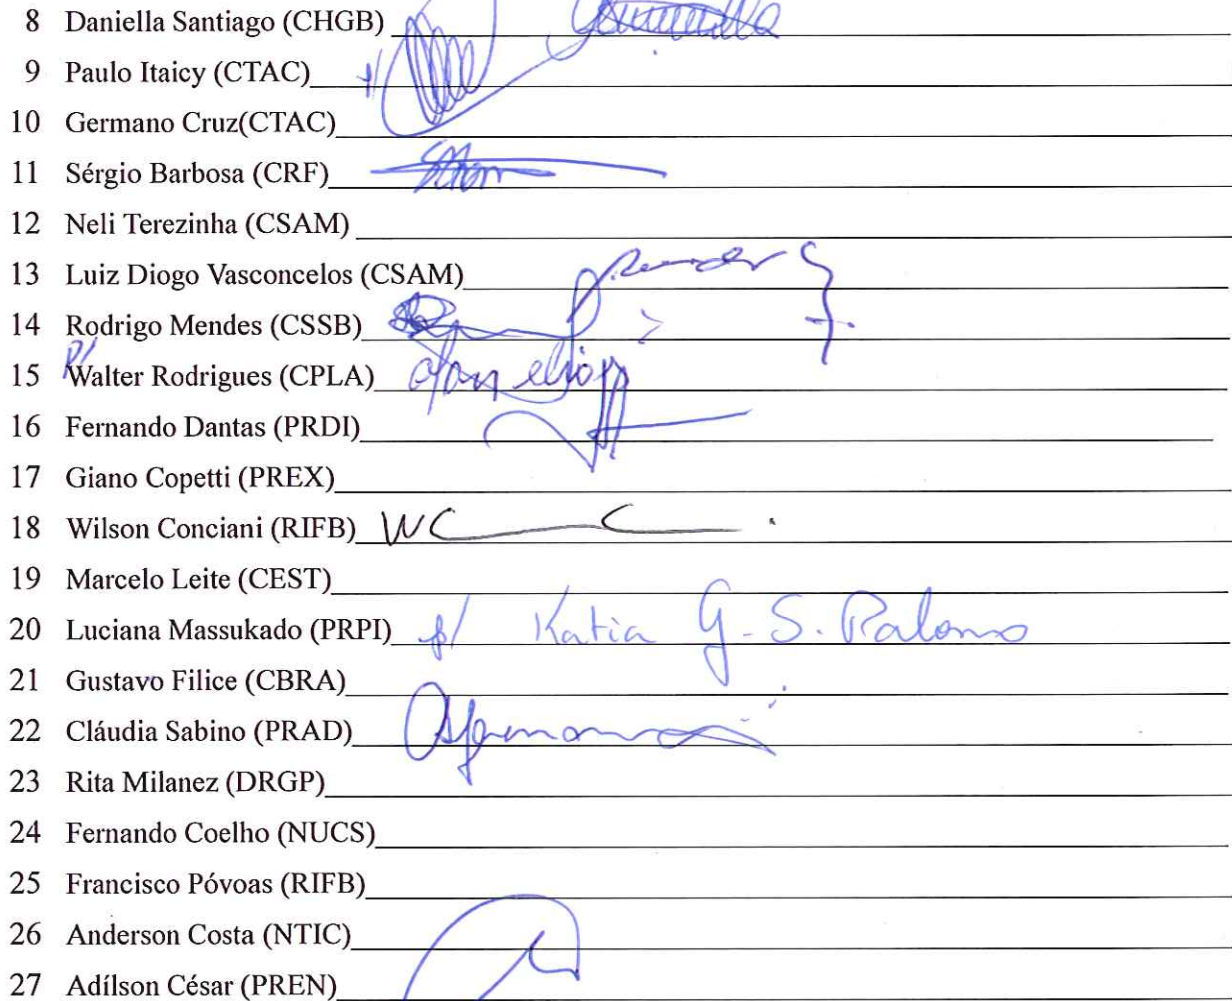 8 Daniella Santiago (CHGB)
9 Paulo Itaicy (CTAC) p/
10 Germano Cruz(CTAC)
11 Sérgio Barbosa (CRF)
12 Neli Terezinha (CSAM)
13 Luiz Diogo Vasconcelos (CSAM)
14 Rodrigo Mendes (CSSB)
15 p/ Walter Rodrigues (CPLA)
16 Fernando Dantas (PRDI)
17 Giano Copetti (PREX)
18 Wilson Conciani (RIFB) WC
19 Marcelo Leite (CEST)
20 Luciana Massukado (PRPI) p/ Katia G. S. Palomo
21 Gustavo Filice (CBRA)
22 Cláudia Sabino (PRAD)
23 Rita Milanez (DRGP)
24 Fernando Coelho (NUCS)
25 Francisco Póvoas (RIFB)
26 Anderson Costa (NTIC)
27 Adílson César (PREN)